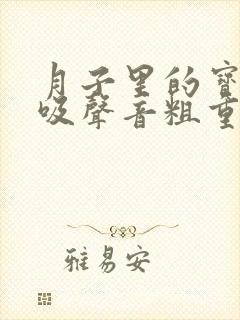 月子里的寶
吸聲音粗重
雅易安